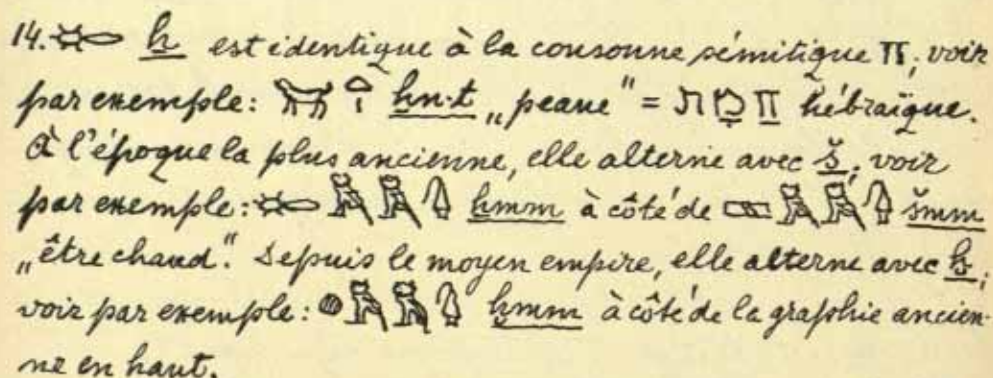 14. 𓄡 ẖ est identique à la consonne sémitique ח; voir
par exemple: ẖn·t „peaue" = חמת hébraïque.
À l'époque la plus ancienne, elle alterne avec š; voir
par exemple: 𓄡𓅓𓅓𓊮 ẖmm à côté de 𓈙𓅓𓅓𓊮 šmm
„être chaud". Depuis le moyen empire, elle alterne avec ḫ;
voir par exemple: 𓐍𓅓𓅓𓊮 ḫmm à côté de la graphie ancien-
ne en haut.